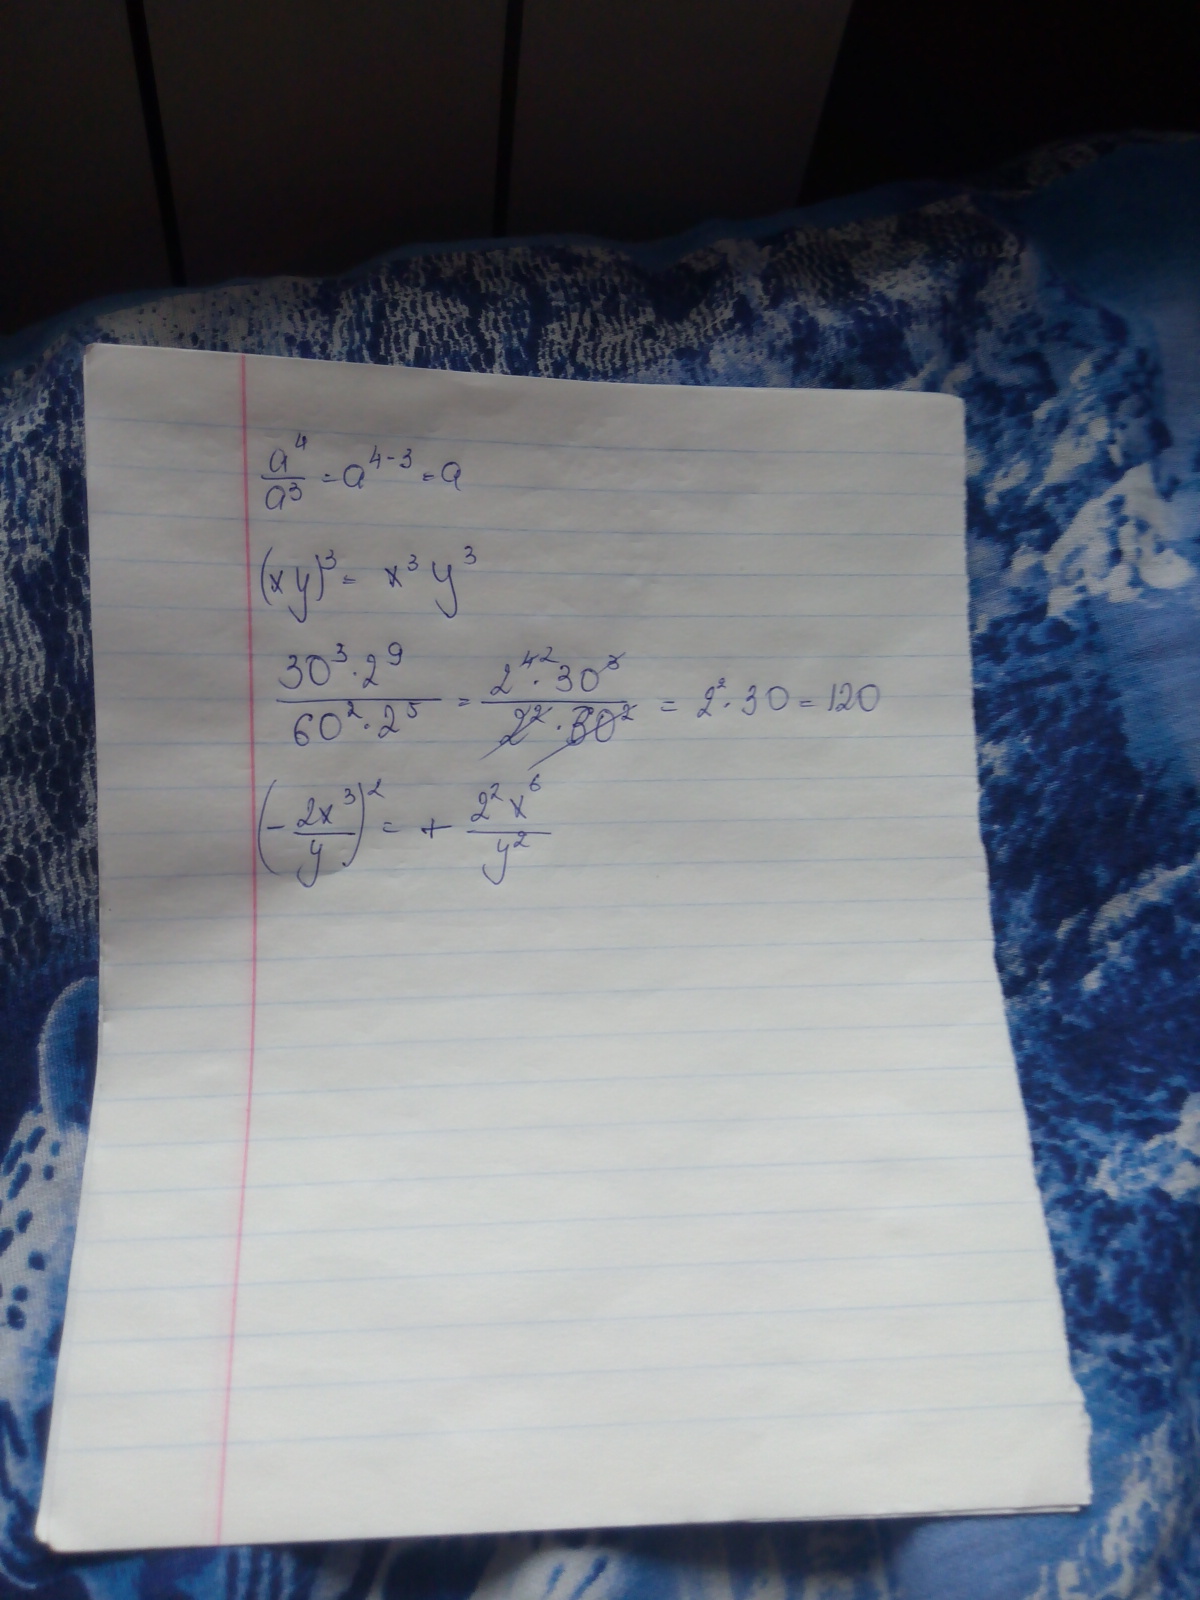 a⁴/a³ = a⁴⁻³ = a
(xy)³ = x³ y³
30³·2⁹/60²·2⁵ = 2⁴²·30³/2²·30² = 2²·30 = 120
(-2x³/y)² = + 2²x⁶/y²